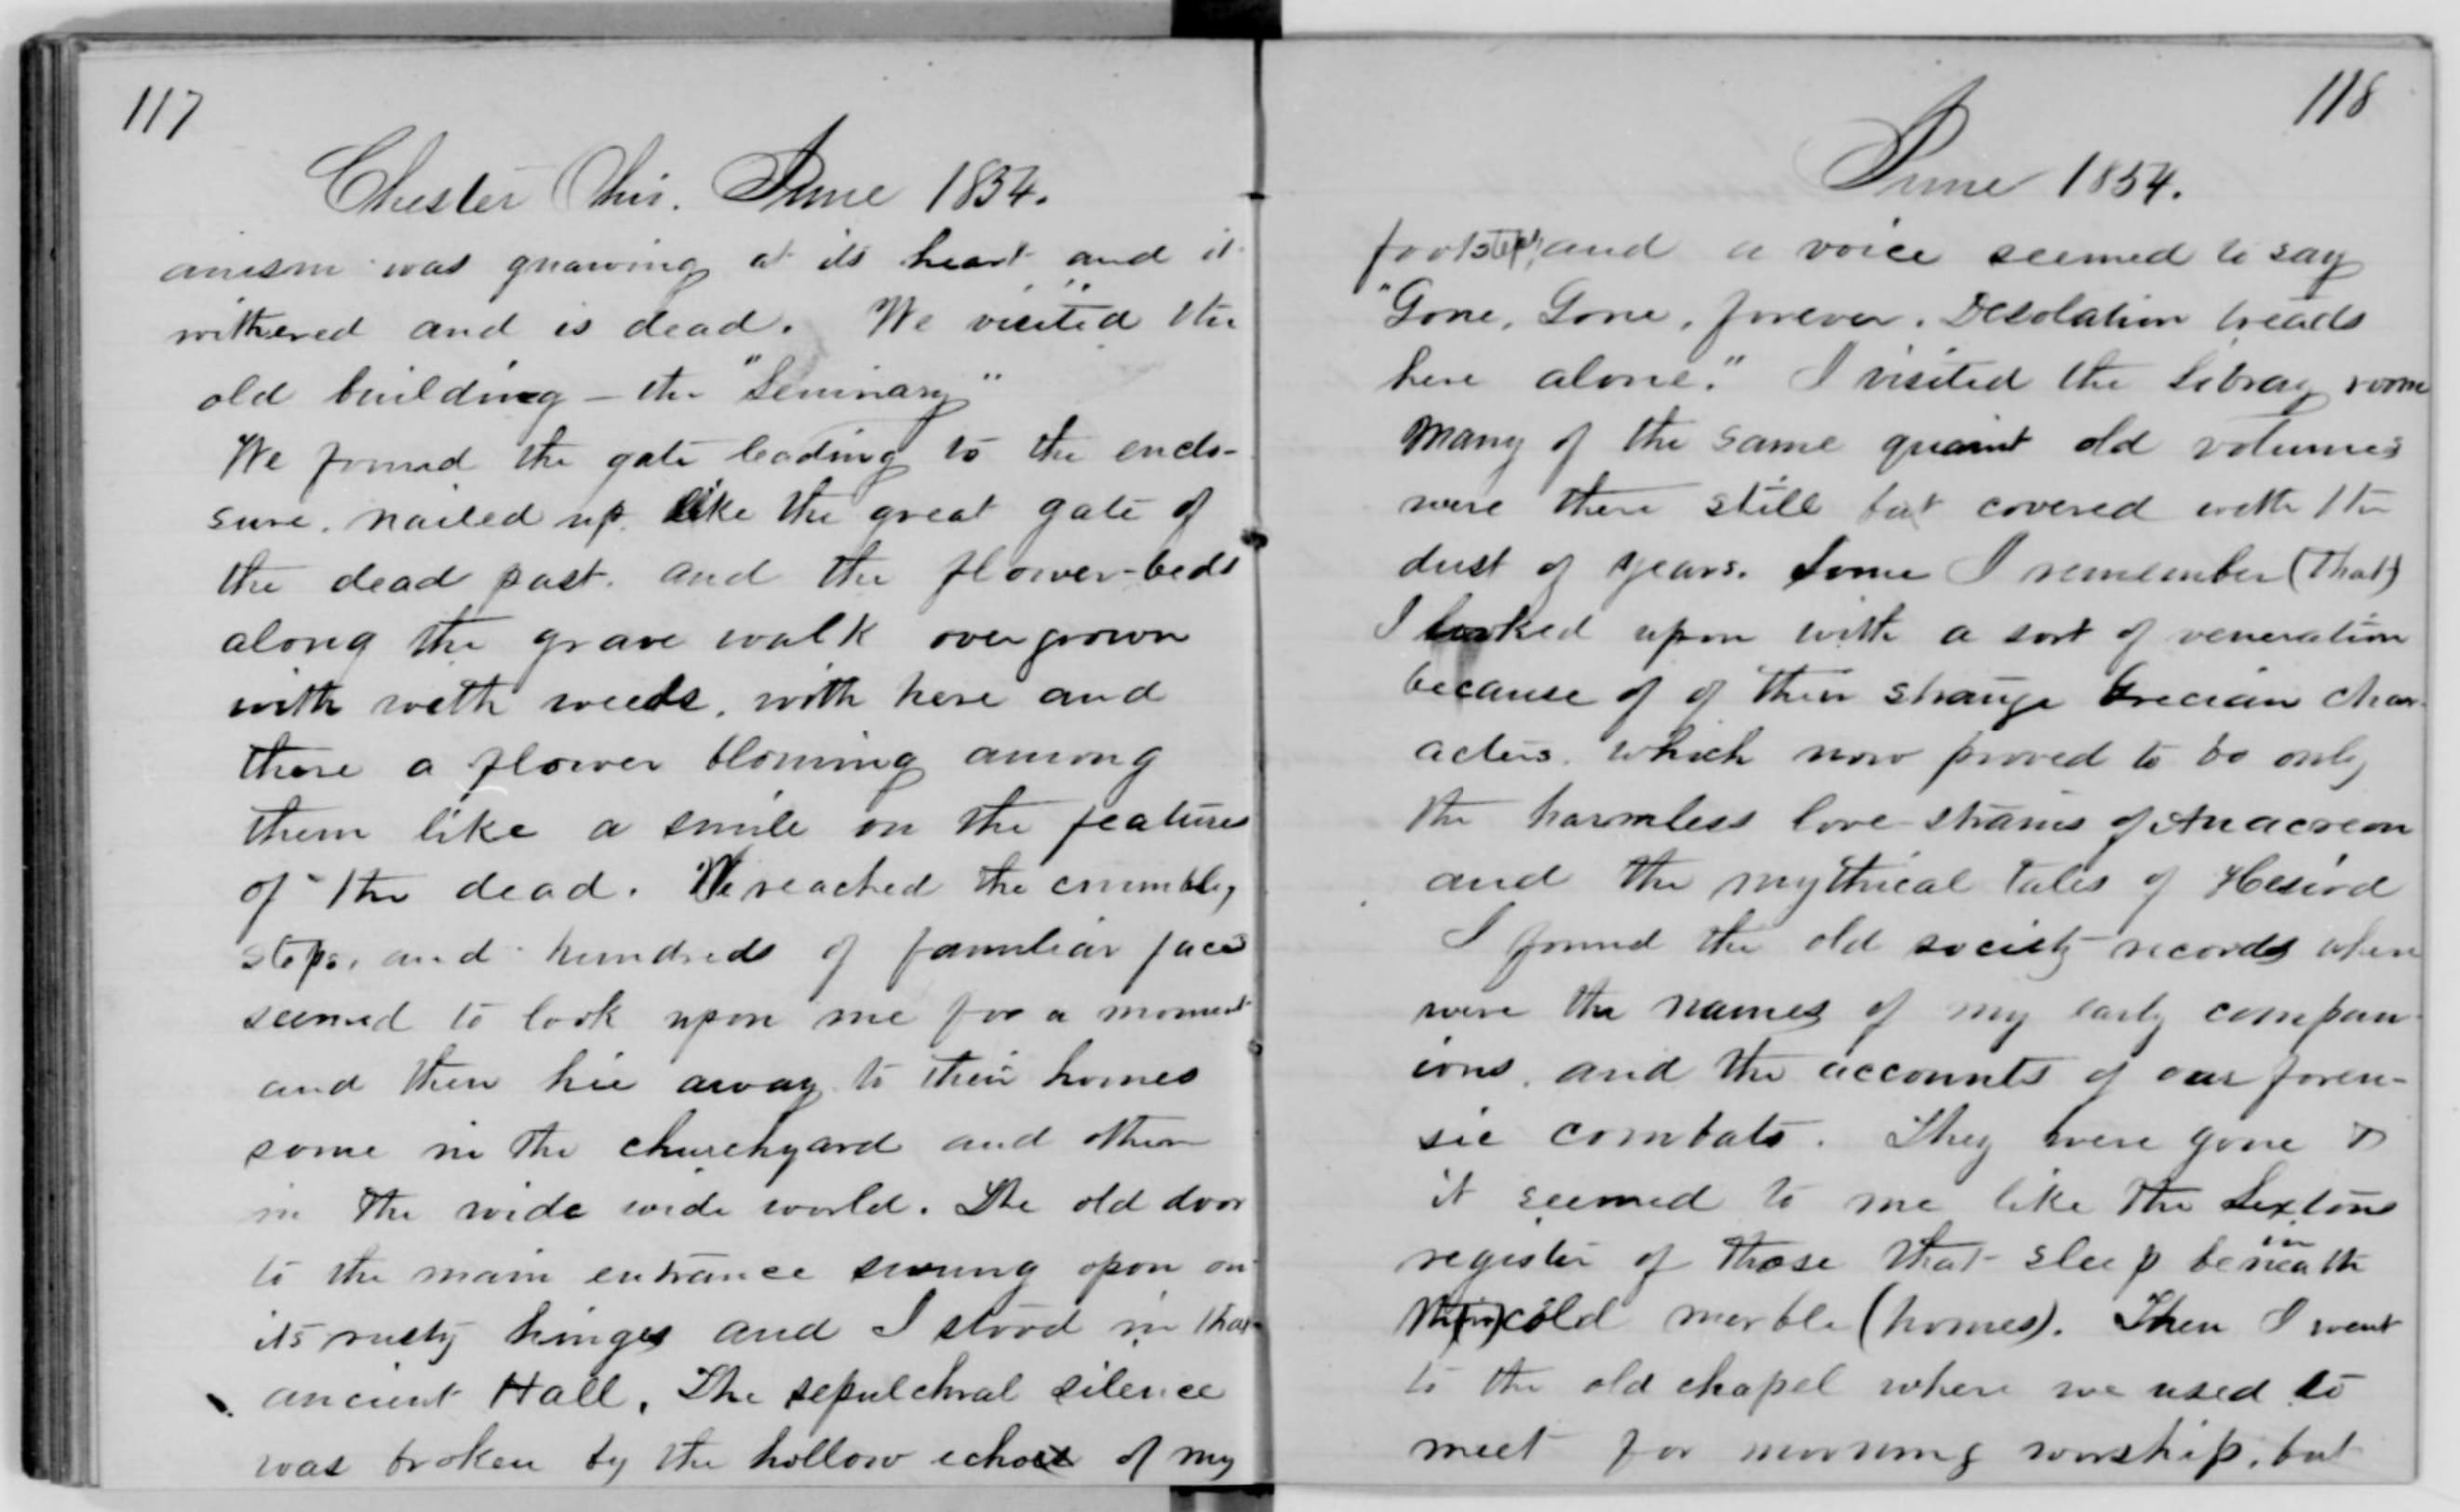 117
Chester Ohio. June 1854.
anism was gnawing at its heart and it
withered and is dead. We visited the
old building - the "Seminary"
We found the gate leading to the enclo-
sure. nailed up like the great gate of
the dead past. and the flower-beds
along the grave walk overgrown
with with weeds, with here and
there a flower blooming among
them like a smile on the features
of the dead. We reached the crumbly
steps, and hundreds of familiar faces
seemed to look upon me for a moment
and then hie away to their homes
some in the churchyard and others
in the wide wide world. The old door
to the main entrance swung opon on
its rusty hinges and I stood in that
ancient Hall. The sepulchral silence
was broken by the hollow echoes of my
118
June 1854.
footsteps, and a voice seemed to say
"Gone, Gone, forever. Desolation treads
here alone." I visited the Library room
Many of the same quaint old volumes
were there still but covered with the
dust of years. Some I remember (that)
I looked upon with a sort of veneration
because of of their strange Grecian char-
acters. which now proved to be only
the harmless love strains of Anacreon
and the mythical tales of Hesiod
I found the old society records when
were the names of my early compan-
ions, and the accounts of our foren-
sic combats. They were gone &
it seemed to me like the Sextons
register of those that sleep beneath
in
cold marble (homes). Then I went
to the old chapel where we used to
meet for morning worship, but